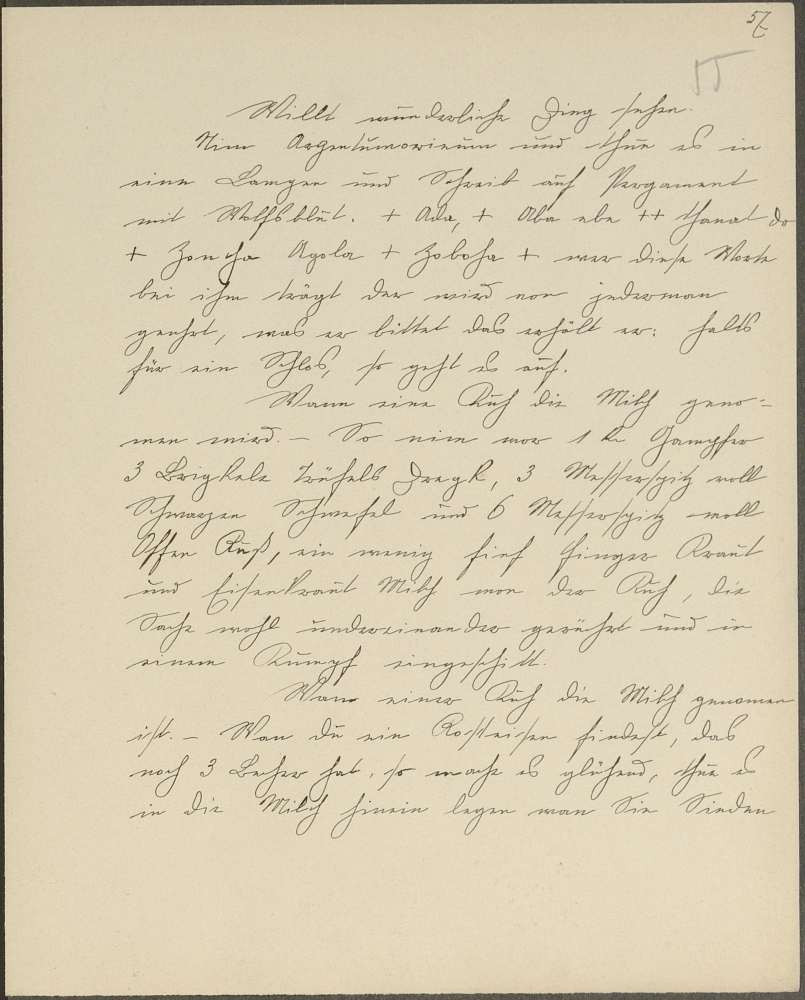 57
55
Willt wunderliche Ding sehen.
Nim Argentumvivum und thue es in
eine Lampen und Schreib auf Pergament
mit Wolfsblut. + Ada, + Aba ebe ++ thanat do
+ Zoncha Agola + Zobocha + wer diese Worte
bei ihm trägt der wird von jederman
geehrt, was er bittet das erhält er: halts
für ein Schlos, so geht es auf.
Wann eine Kuh die Milch geno-
men wird. – So nim vor 1 Gampfer
3 Brigkele Teufels Dregk, 3 Messerspitz voll
Schwarzen Schwefel und 6 Messerspitz voll
Offen Ruß, ein wenig finf finger Kraut
und Eisenkraut Milch von der Kuh, die
Sache wohl undereinander gerührt und in
einem Kumpf eingeschitt.
Wann einer Kuh die Milch genomen
ist. – Wan du ein Rosseisen findest, das
noch 3 Lecher hat, so mache es glühend, thue es
in die Milch hinein legen wan Sie Sieden